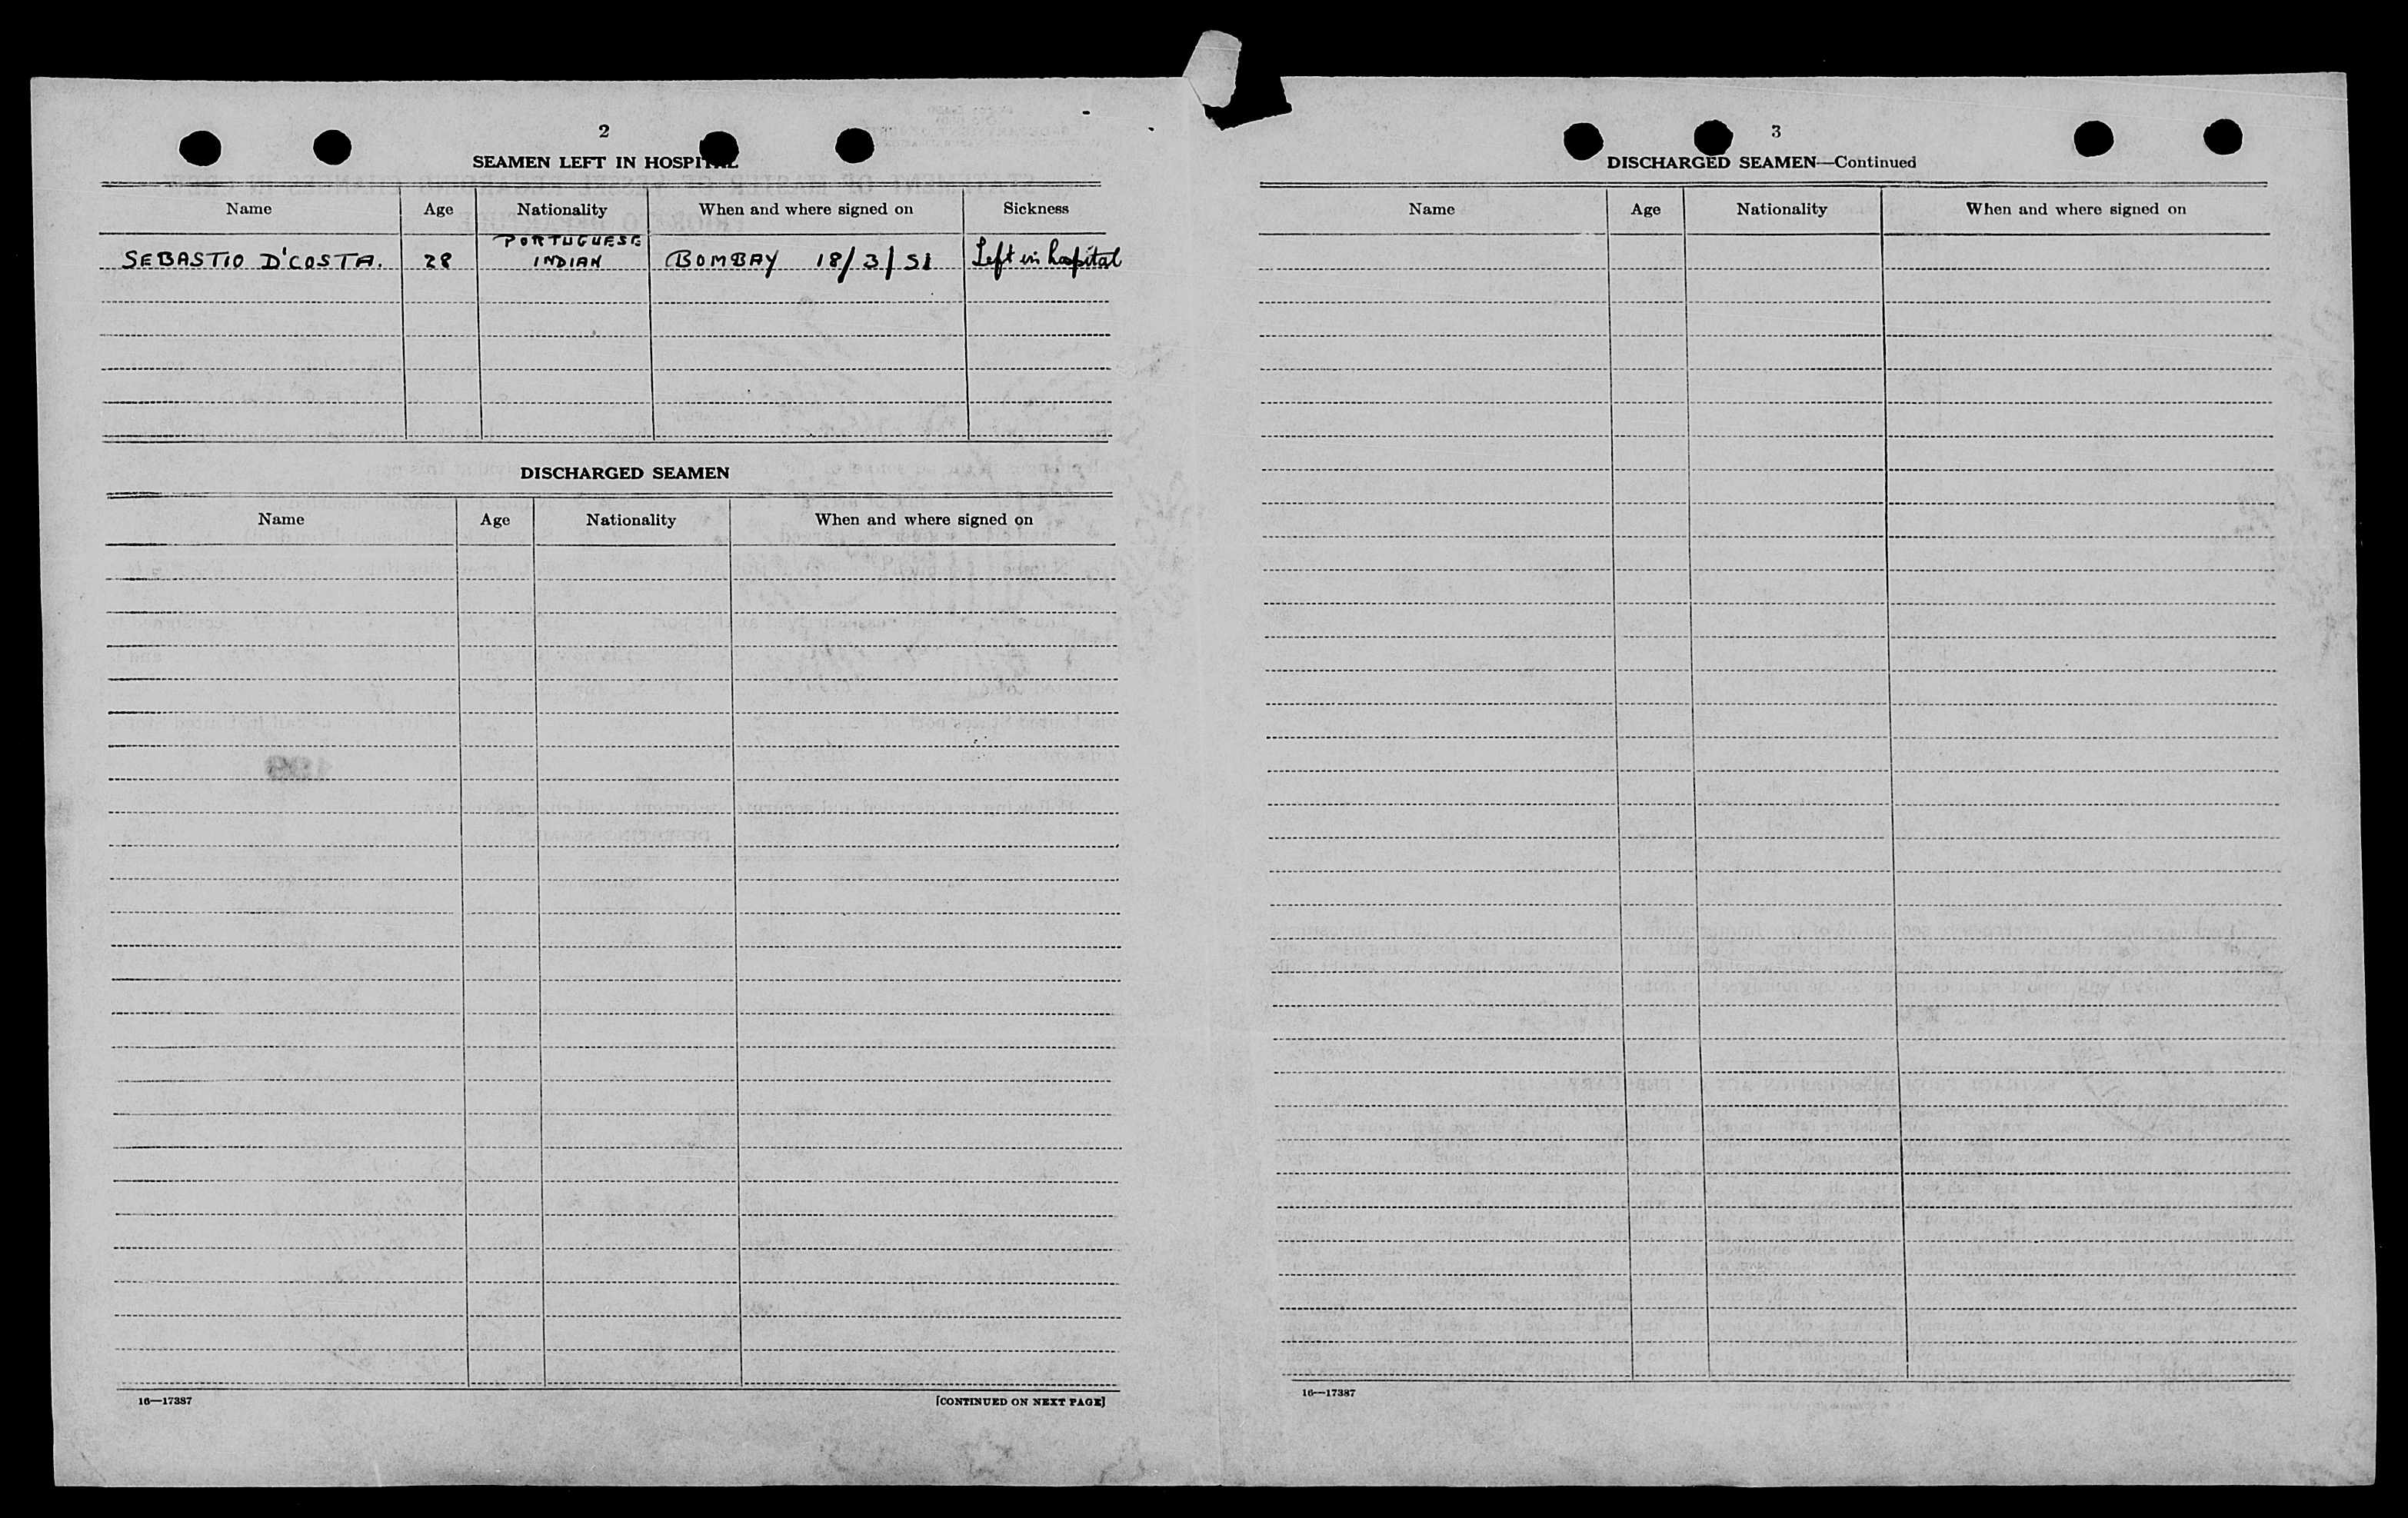 2
SEAMEN LEFT IN HOSPITAL
Name Age Nationality When and where signed on Sickness
SEBASTIO D'COSTA. 28 PORTUGUESE INDIAN BOMBAY 18/3/51 Left in hospital
DISCHARGED SEAMEN
Name Age Nationality When and where signed on
16—17387 [CONTINUED ON NEXT PAGE]
3
DISCHARGED SEAMEN—Continued
Name Age Nationality When and where signed on
16—17387